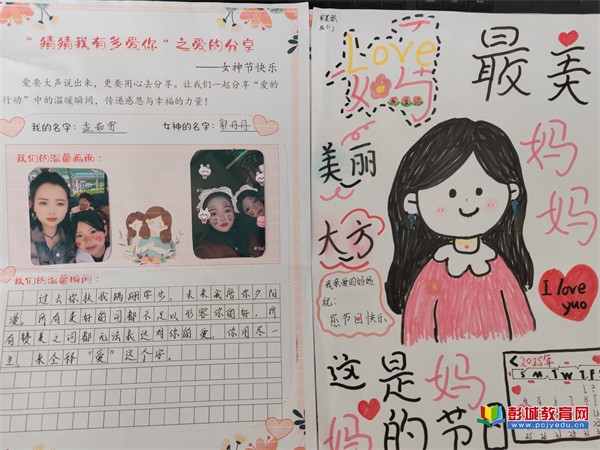 “猜猜我有多爱你”之爱的分享
——女神节快乐
爱要大声说出来，更要用心去分享。让我们一起分享“爱的
行动”中的温暖瞬间，传递感恩与幸福的力量！
我的名字：孟
女神的名字：郭丹丹
我们的温馨画面：
我们的温馨瞬间：
过去你扶我蹒跚学步，未来我陪你夕阳
漫。所有美好的词都不足以形容你的好，所
有赞美之词都无法表达对你的爱。你用尽一
生，来全释“爱”这个字。
Love
妈妈
最美
妈妈
美丽
大方
我亲爱的妈妈
祝：
您节日快乐
I love
yuo
这是妈
妈的节日
2025年
S M T W T F
彭城教育网
www.pcjyedu.cn